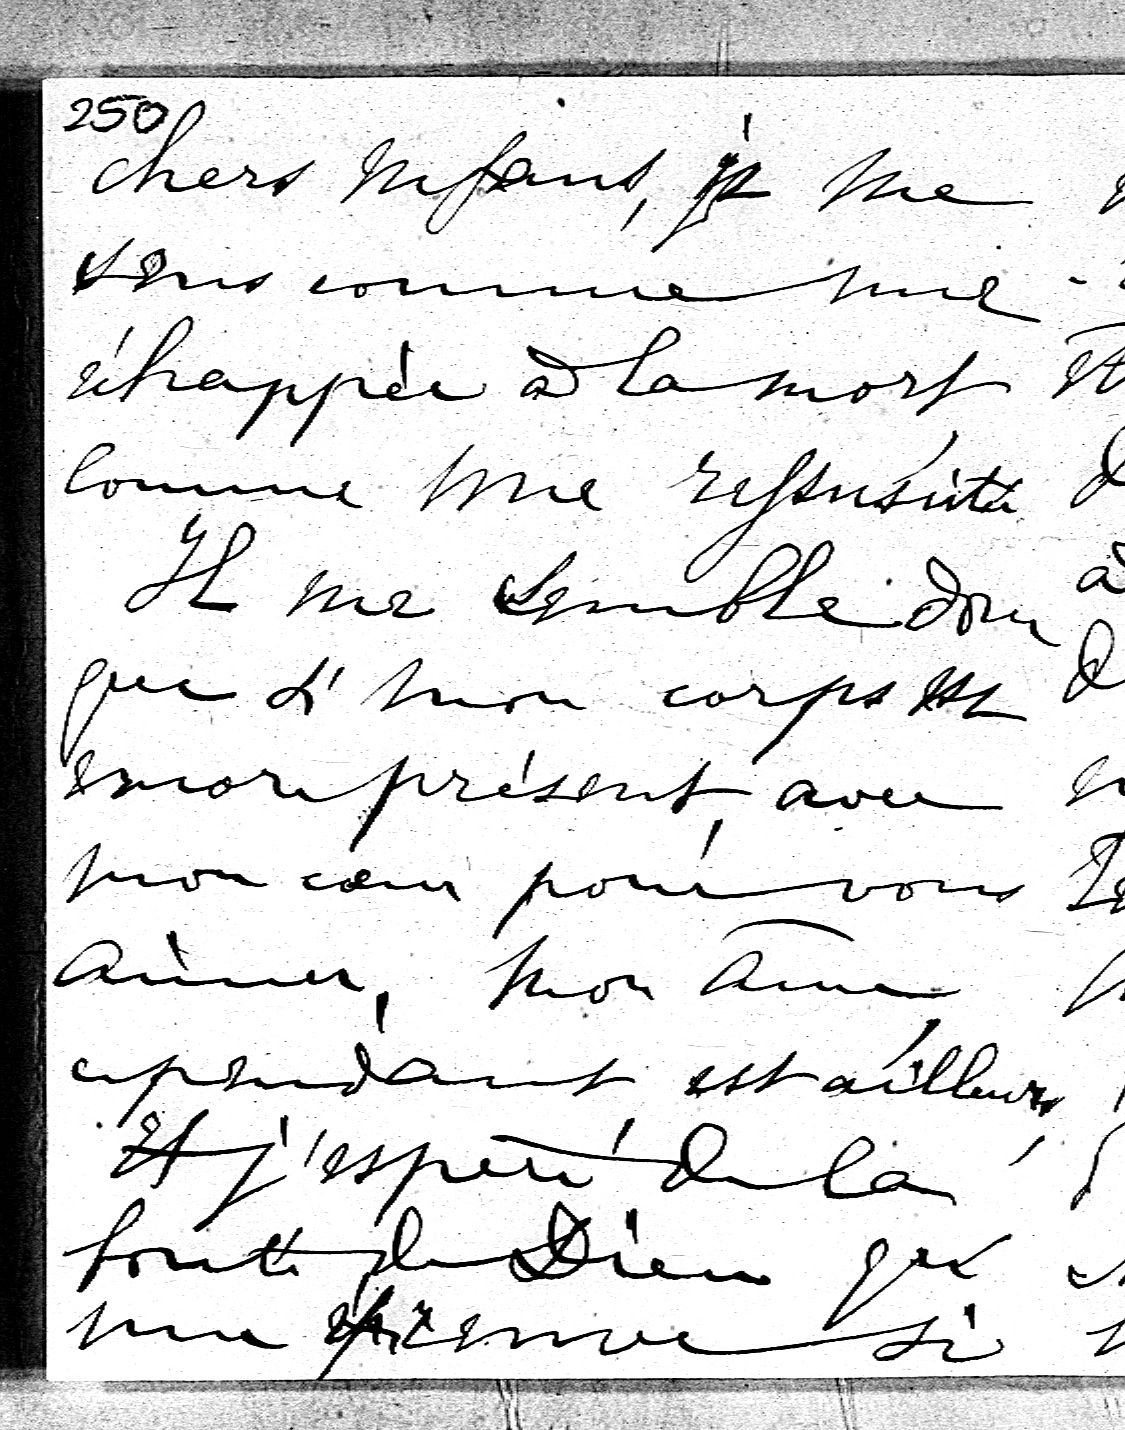 250
chers Enfans, je me
sens comme une
échappée à la mort
comme une ressuscité
Il me semble donc
que si mon corps est
encore présent avec
mon cœur pour vous
aimer, mon âme
cependant est ailleurs
Et j'espère de la
bonté de Dieu que
une épreuve si